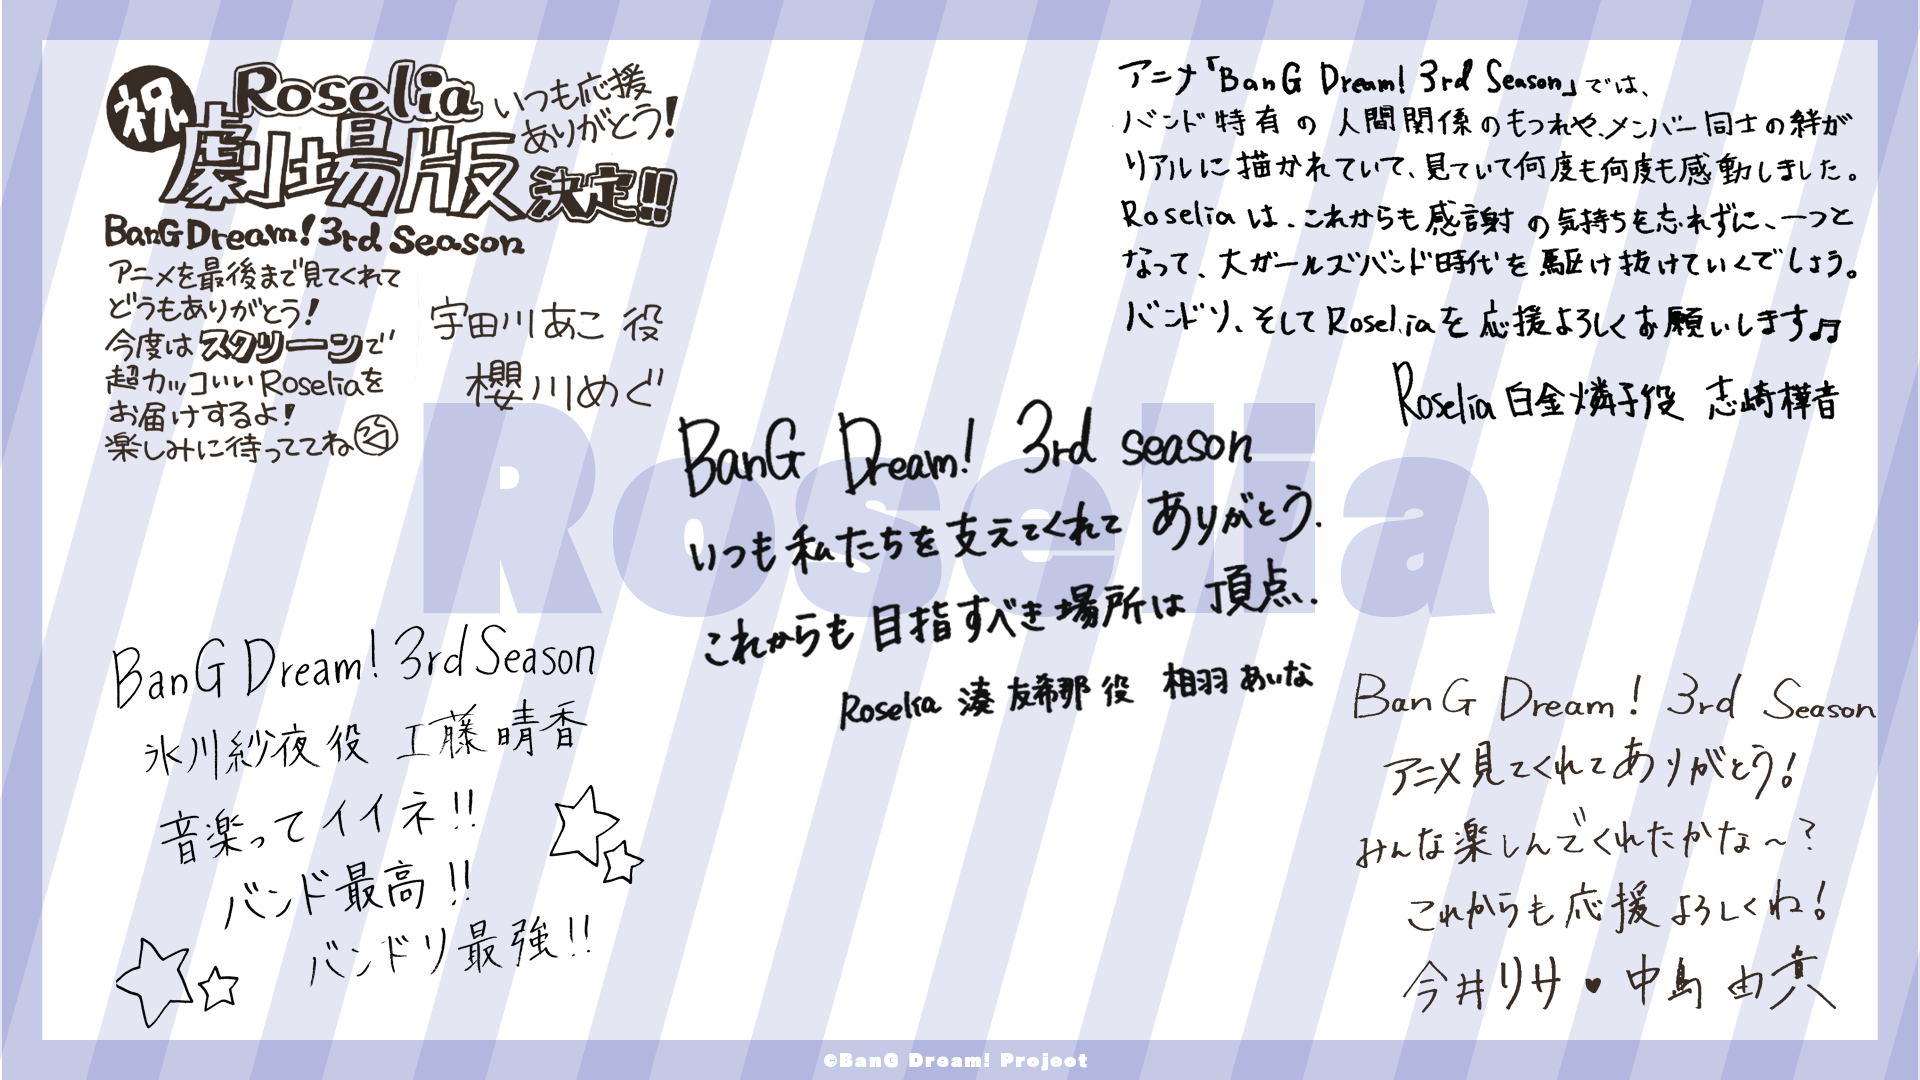 祝
Roselia
劇場版
決定!!
いつも応援
ありがとう!
BanG Dream! 3rd Season
アニメを最後まで見てくれて
どうもありがとう!
今度はスクリーンで
超カッコいいRoseliaを
お届けするよ!
楽しみに待っててね
宇田川あこ 役
櫻川めぐ
アニメ「BanG Dream! 3rd Season」では、
バンド特有の人間関係のもつれや、メンバー同士の絆が
リアルに描かれていて、見ていて何度も何度も感動しました。
Roseliaは、これからも感謝の気持ちを忘れずに、一つと
なって、大ガールズバンド時代を駆け抜けていくでしょう。
バンドリ、そしてRoseliaを応援よろしくお願いします♫
Roselia 白金燐子役 志崎樺音
BanG Dream! 3rd season
いつも私たちを支えてくれて ありがとう.
これからも目指すべき場所は 頂点.
Roselia 湊 友希那 役 相羽 あいな
Roselia
BanG Dream! 3rd Season
氷川紗夜 役 工藤 晴香
音楽ってイイネ!!
バンド最高!!
バンドリ最強!!
BanG Dream! 3rd Season
アニメ見てくれてありがとう!
みんな楽しんでくれたかな～?
これからも応援よろしくね!
今井リサ♥中島 由貴
©BanG Dream! Project